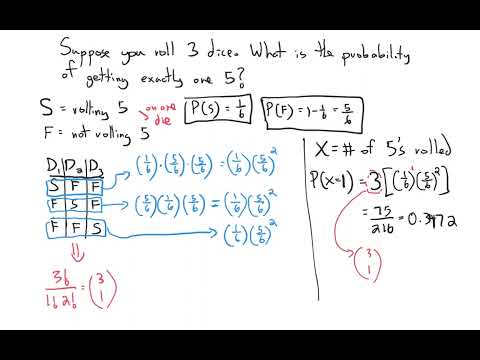 Suppose you roll 3 dice. What is the probability
of getting exactly one 5?
S = rolling 5 on one die
F = not rolling 5
P(S) = 1/6
P(F) = 1 - 1/6 = 5/6
D₁ | D₂ | D₃
S | F | F
F | S | F
F | F | S
(1/6)·(5/6)·(5/6) = (1/6)(5/6)²
(5/6)(1/6)(5/6) = (1/6)(5/6)²
(1/6)(5/6)²
3!/(1! 2!) = (3 1)
X = # of 5's rolled
P(X=1) = 3[(1/6)¹(5/6)²]
= 75/216 = 0.3472
(3 1)